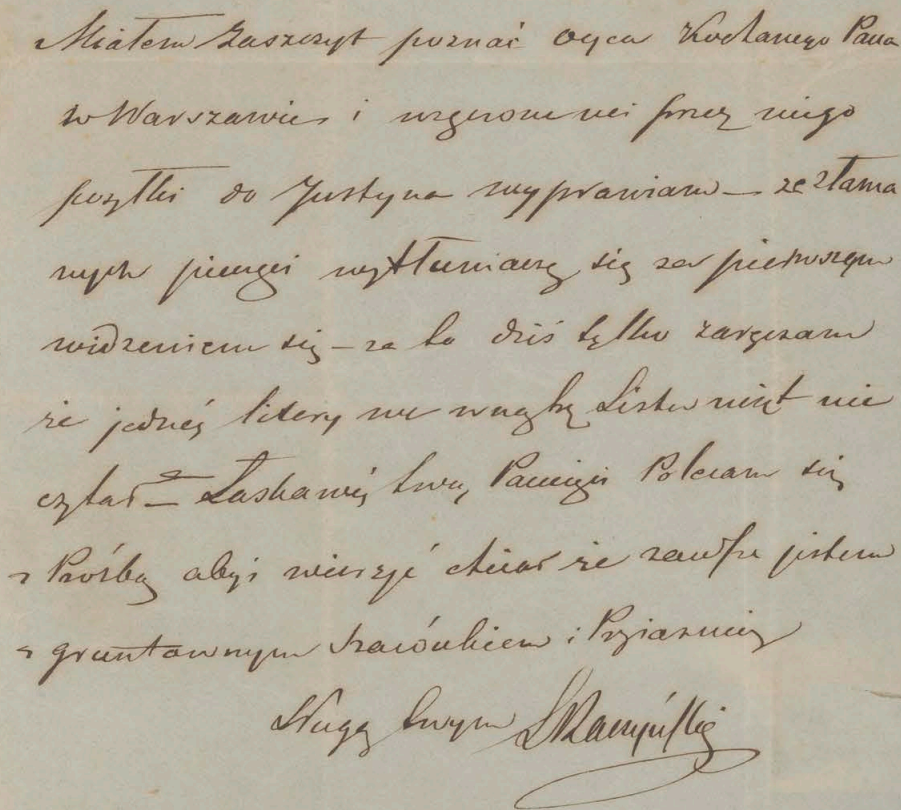 Miałem Zaszczyt poznać oyca Kochanego Pana
w Warszawie i wręczone mi przez niego
posyłki do Justyna wyprawiam – ze złama
nych pieczęci wytłumaczę się za pierwszym
widzeniem się – za to dziś tylko zaręczam
że jednéj litery we wnątrz Listu nikt nie
czytał – Łaskawéj twéj Pamięci Polecam się
z Prośbą abyś wierzyć chciał że zawsze jestem
z gruntownym szacunkiem i Przyiaźnią
Sługą twym